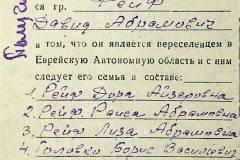 ся гр. Рейф
Давид Абрамович
в том, что он является переселенцем в
Еврейскую Автономную область и с ним
следует его семья в составе:
1. Рейф Дора Айзеровна
2. Рейф Раиса Абрамовна
3. Рейф Лиза Абрамовна
4. Головко Борис Васильевич